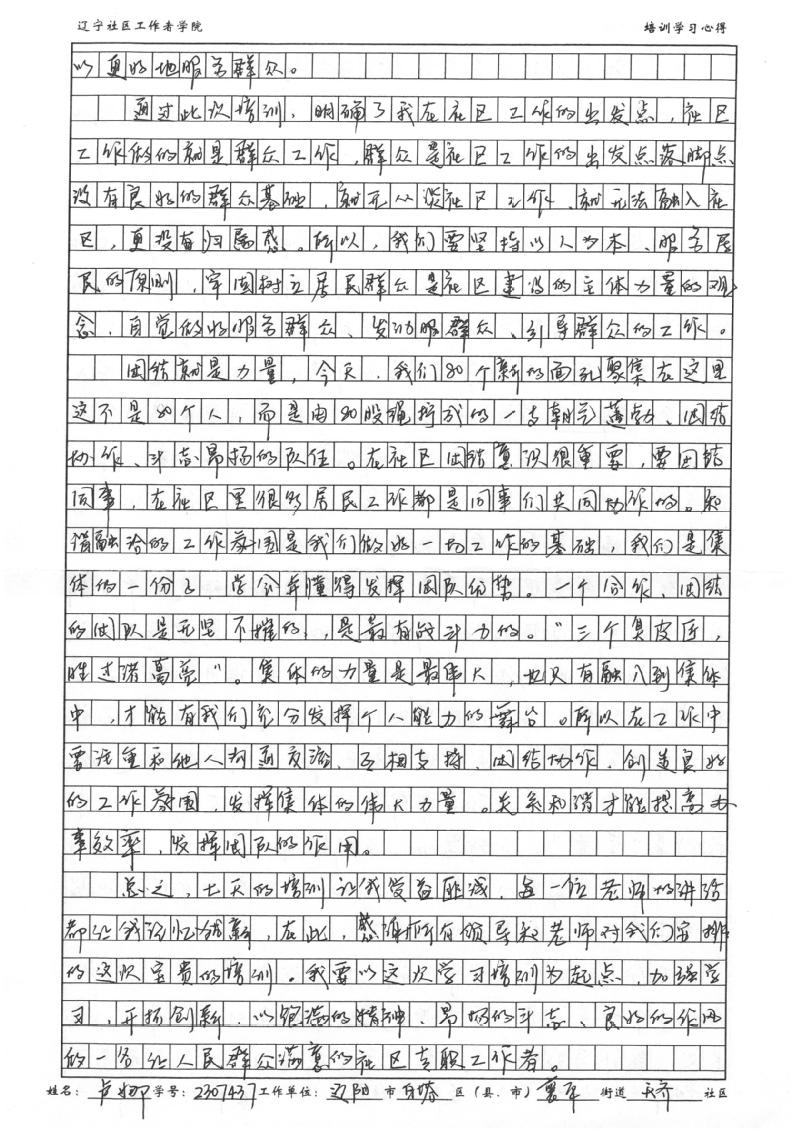 辽宁社区工作者学院 培训学习心得
以更好地服务群众。
通过此次培训，明确了我在社区工作的出发点，社区
工作做的就是群众工作，群众是社区工作的出发点落脚点
没有良好的群众基础，就无从谈社区工作、就无法融入社
区，更没有归属感。所以，我们要坚持以人为本、服务居
民的原则，牢固树立居民群众是社区建设的主体力量的观
念，自觉做好服务群众、发动服群众、引导群众的工作。
团结就是力量，今天，我们80个新的面孔聚集在这里
这不是80个人，而是由80股绳拧成的一支朝气蓬勃、团结
协作、斗志昂扬的队伍。在社区团结意识很重要，要团结
同事，在社区里很多居民工作都是同事们共同协作的。和
谐融洽的工作氛围是我们做好一切工作的基础，我们是集
体的一份子，学会并懂得发挥团队优势。一个合作、团结
的团队是无坚不摧的，是最有战斗力的。“三个臭皮匠，
胜过诸葛亮”。集体的力量是最伟大，也只有融入到集体
中，才能有我们充分发挥个人能力的舞台。所以在工作中
要注重和他人沟通交流、互相支持、团结协作，创造良好
的工作氛围，发挥集体的伟大力量。关系和谐才能提高办
事效率，发挥团队的作用。
总之，七天的培训让我受益匪浅，每一位老师的讲话
都让我记忆犹新，在此，感谢所有领导和老师对我们安排
的这次宝贵的培训。我要以这次学习培训为起点，加强学
习，开拓创新，以饱满的精神、昂扬的斗志、良好的作风
的一名让人民群众满意的社区专职工作者。
姓名：卢娜 学号：2307437 工作单位：辽阳 市 白塔 区（县、市） 襄平 街道 天齐 社区